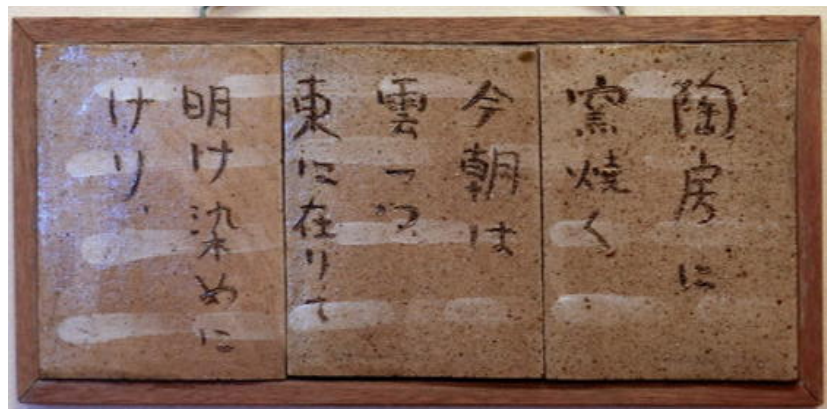 陶房に
窯焼く
今朝は
雲一つ
東に在りて
明け染めに
けり